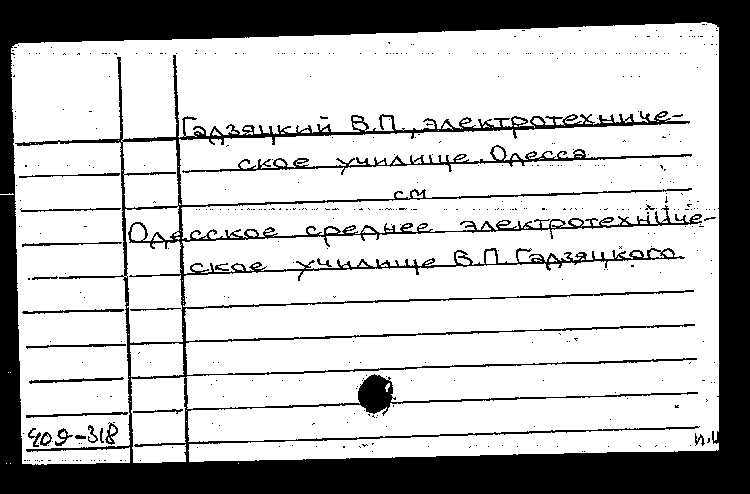 Гадзяцкий В.П., электротехниче-
ское училище. Одесса
см
Одесское среднее электротехниче-
ское училище В.П. Гадзяцкого.
409-318